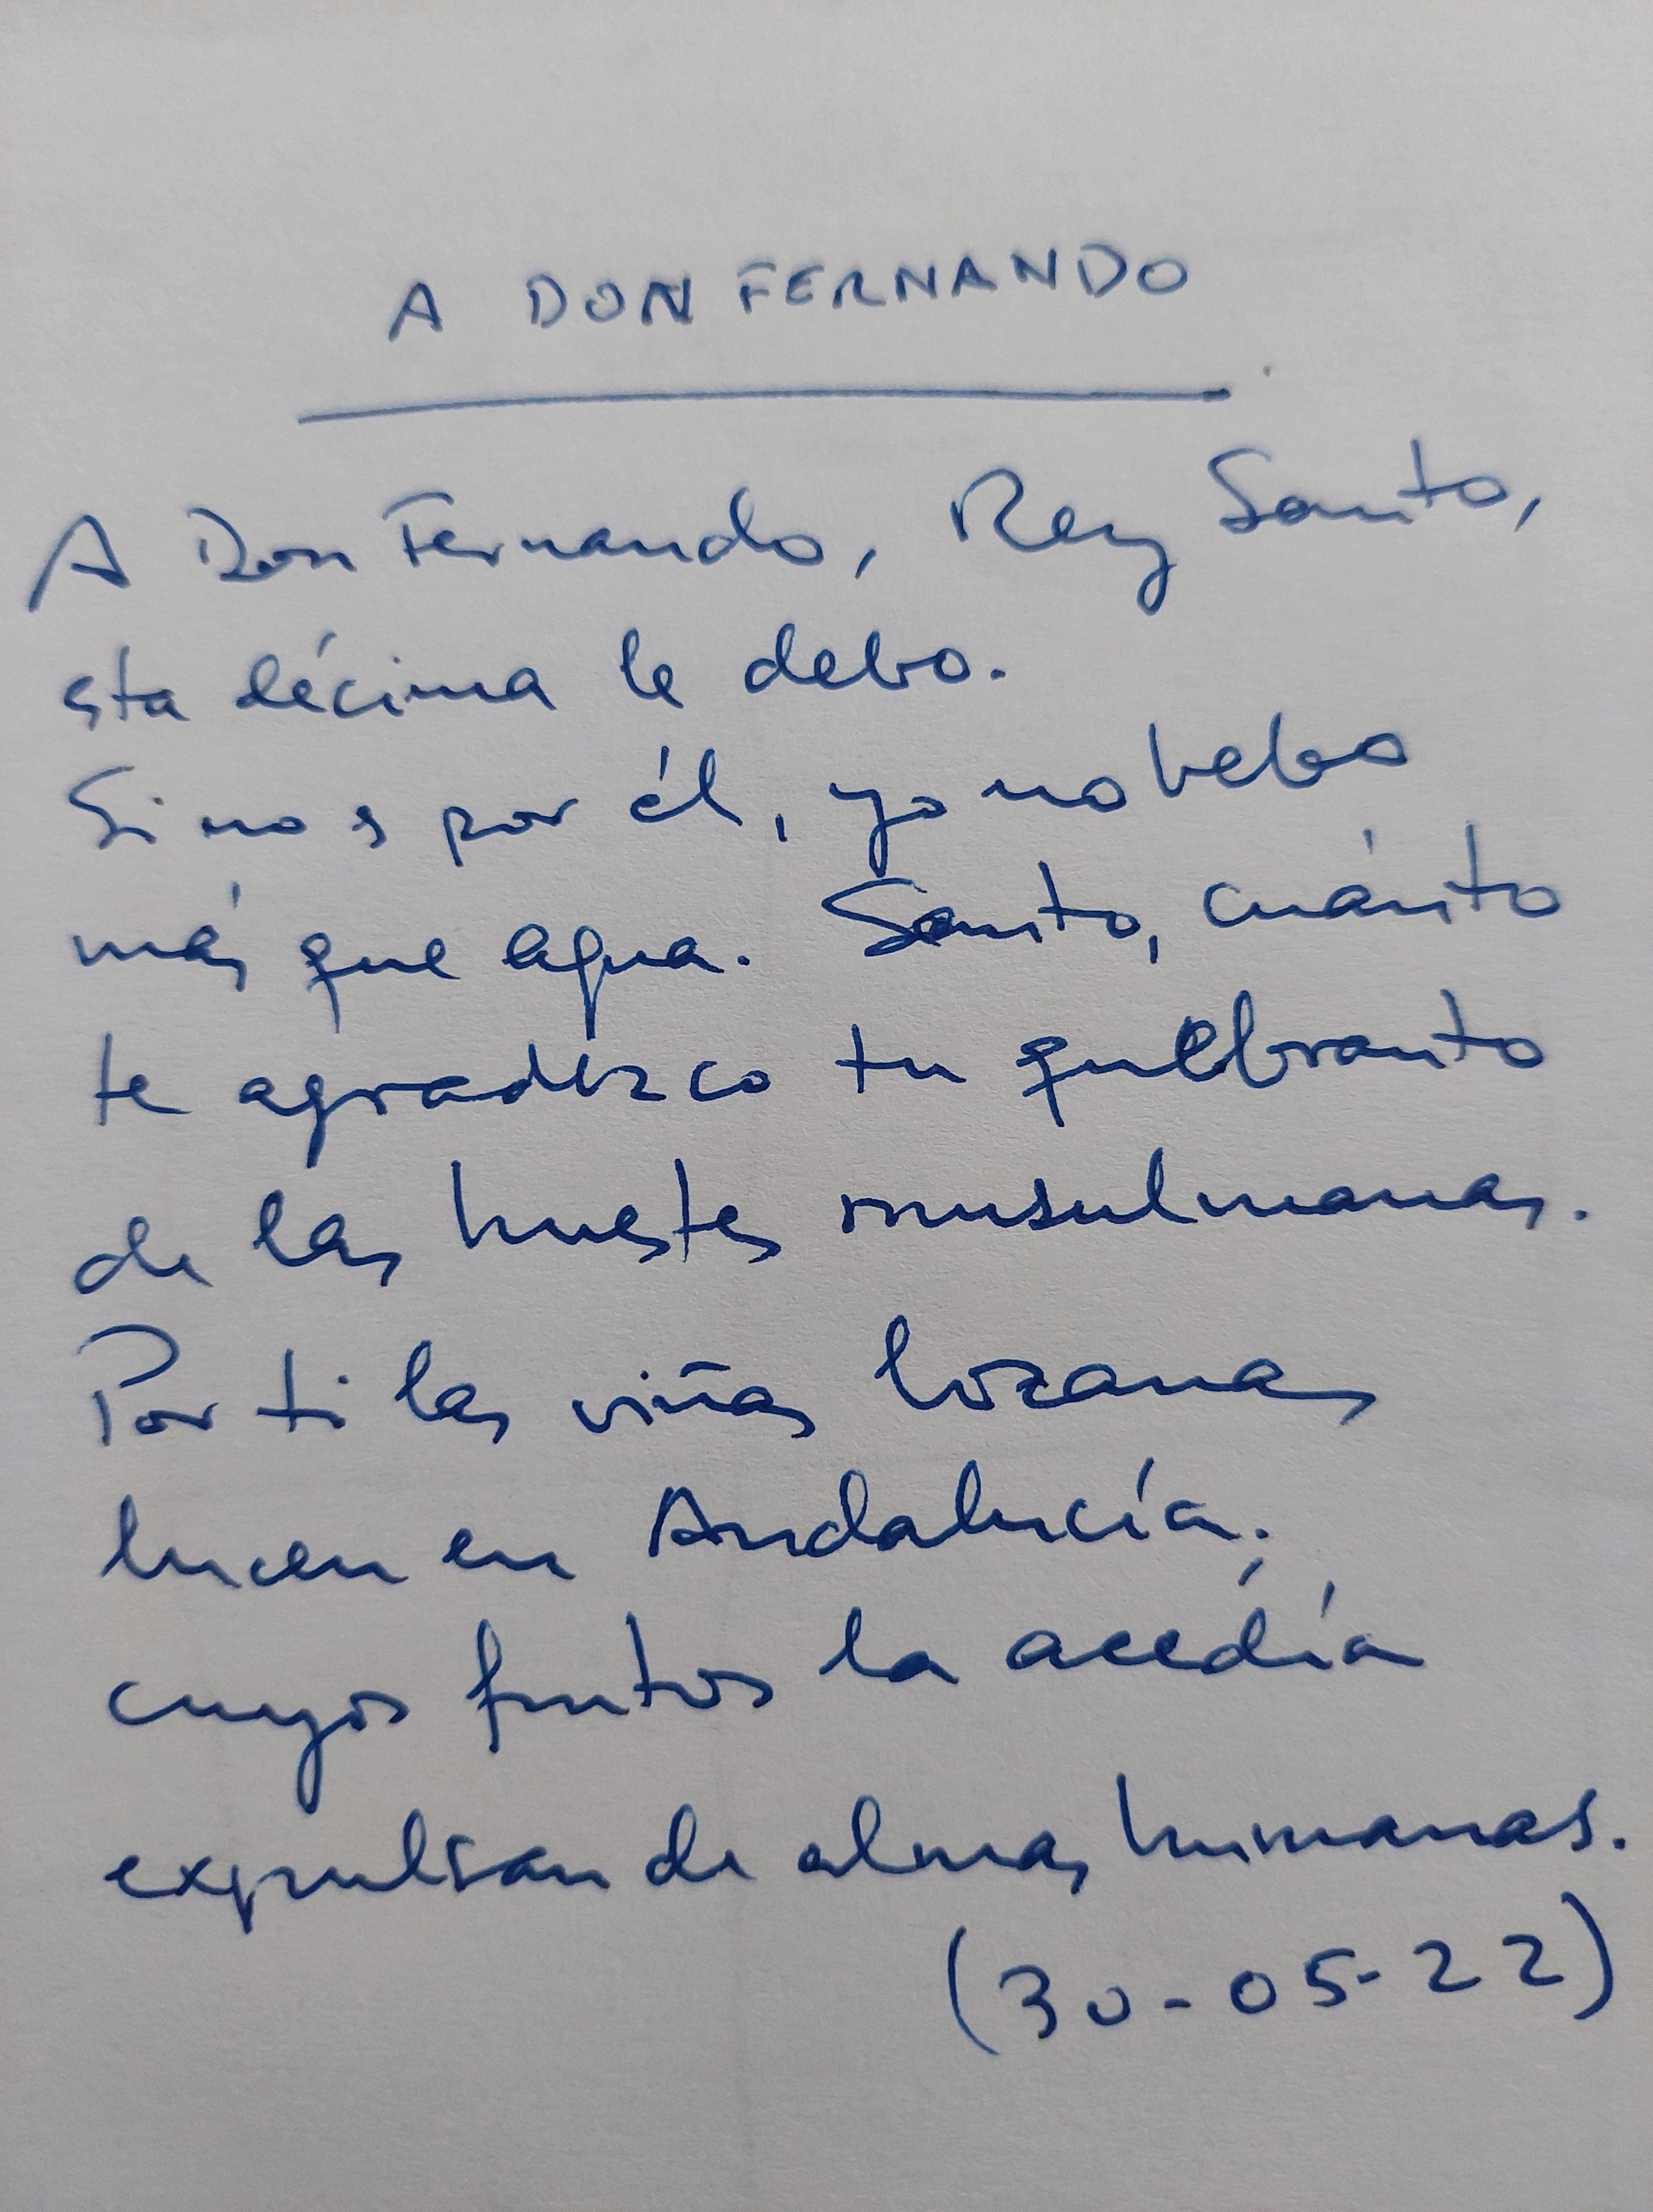 A DON FERNANDO
A Don Fernando, Rey Santo,
esta décima le debo.
Si no es por él, yo no bebo
más que agua. Santo, cuánto
te agradezco tu quebranto
de las huestes musulmanas.
Por ti las viñas lozanas
lucen en Andalucía;
cuyos frutos la acedía
expulsan de almas humanas.
(30-05-22)